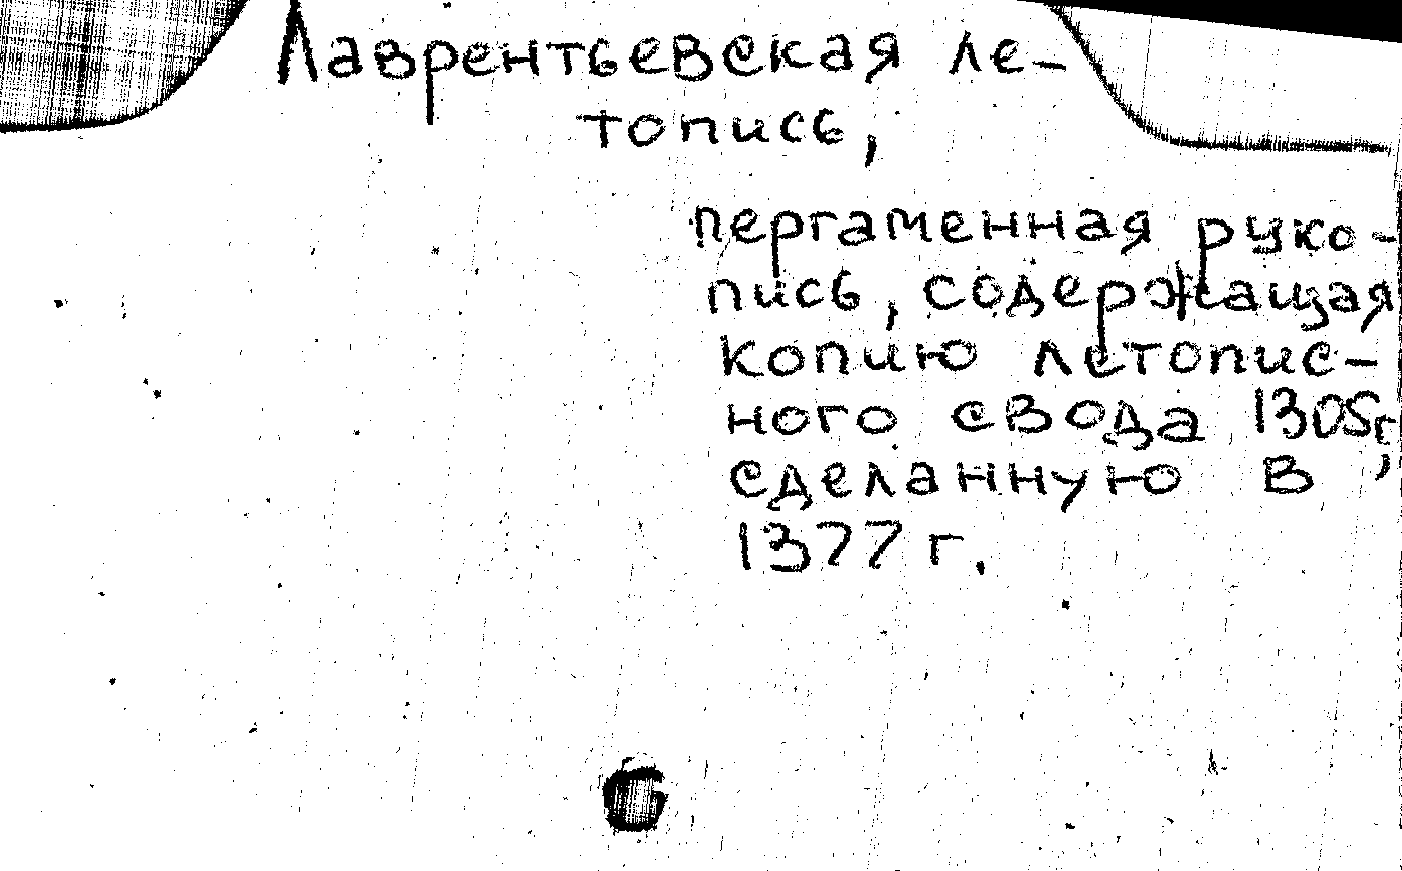 Лаврентьевская ле-
топись,
пергаменная руко-
пись, содержащая
копию летопис-
ного свода 1305г,
сделанную в
1377 г.